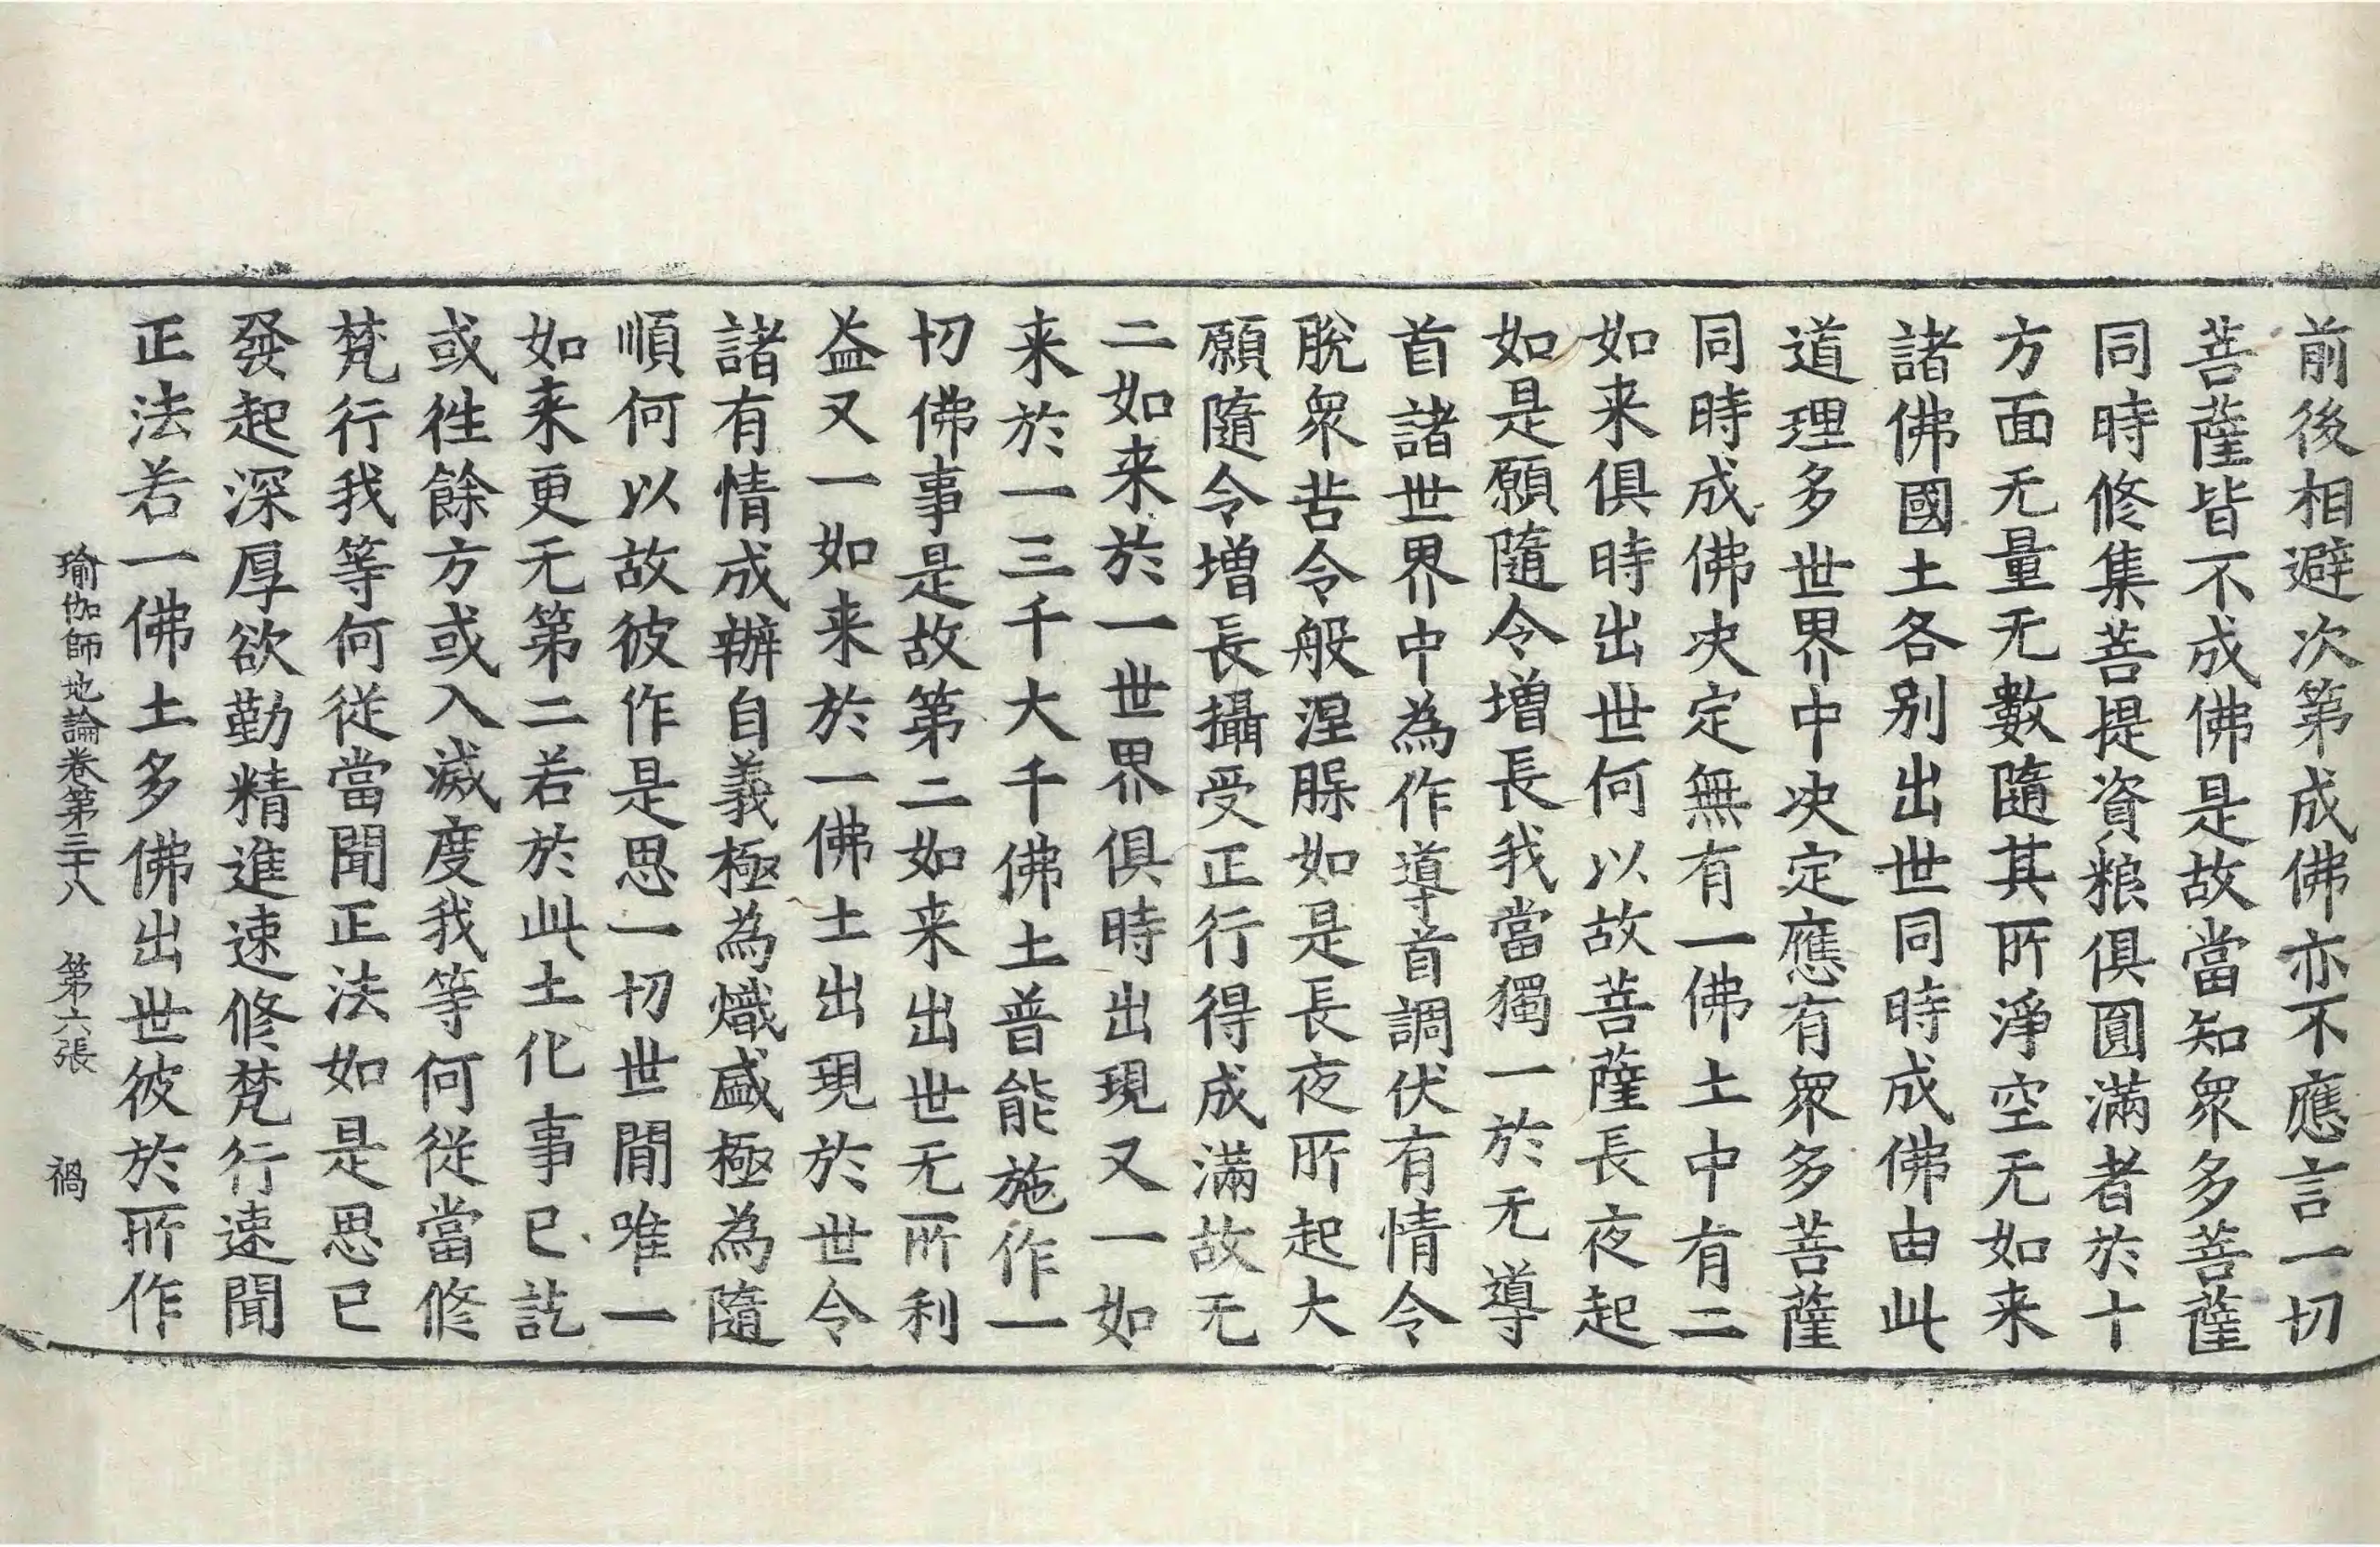 前後相避次第成佛亦不應言一切
菩薩皆不成佛是故當知衆多菩薩
同時修集菩提資粮俱圓滿者於十
方面无量无數隨其所淨空无如来
諸佛國土各别出世同時成佛由此
道理多世界中决定應有衆多菩薩
同時成佛决定無有一佛土中有二
如来俱時出世何以故菩薩長夜起
如是願隨令增長我當獨一於无導
首諸世界中為作導首調伏有情令
脫衆苦令般涅槃如是長夜所起大
願隨令增長攝受正行得成滿故无
二如来於一世界俱時出現又一如
来於一三千大千佛土普能施作一
切佛事是故第二如来出世无所利
益又一如来於一佛土出現於世令
諸有情成辦自義極為熾盛極為隨
順何以故彼作是思一切世間唯一
如来更无第二若於此土化事已訖
或往餘方或入滅度我等何從當修
梵行我等何從當聞正法如是思已
發起深厚欲勤精進速修梵行速聞
正法若一佛土多佛出世彼於所作
瑜伽師地論卷第三十八 第六張 禍